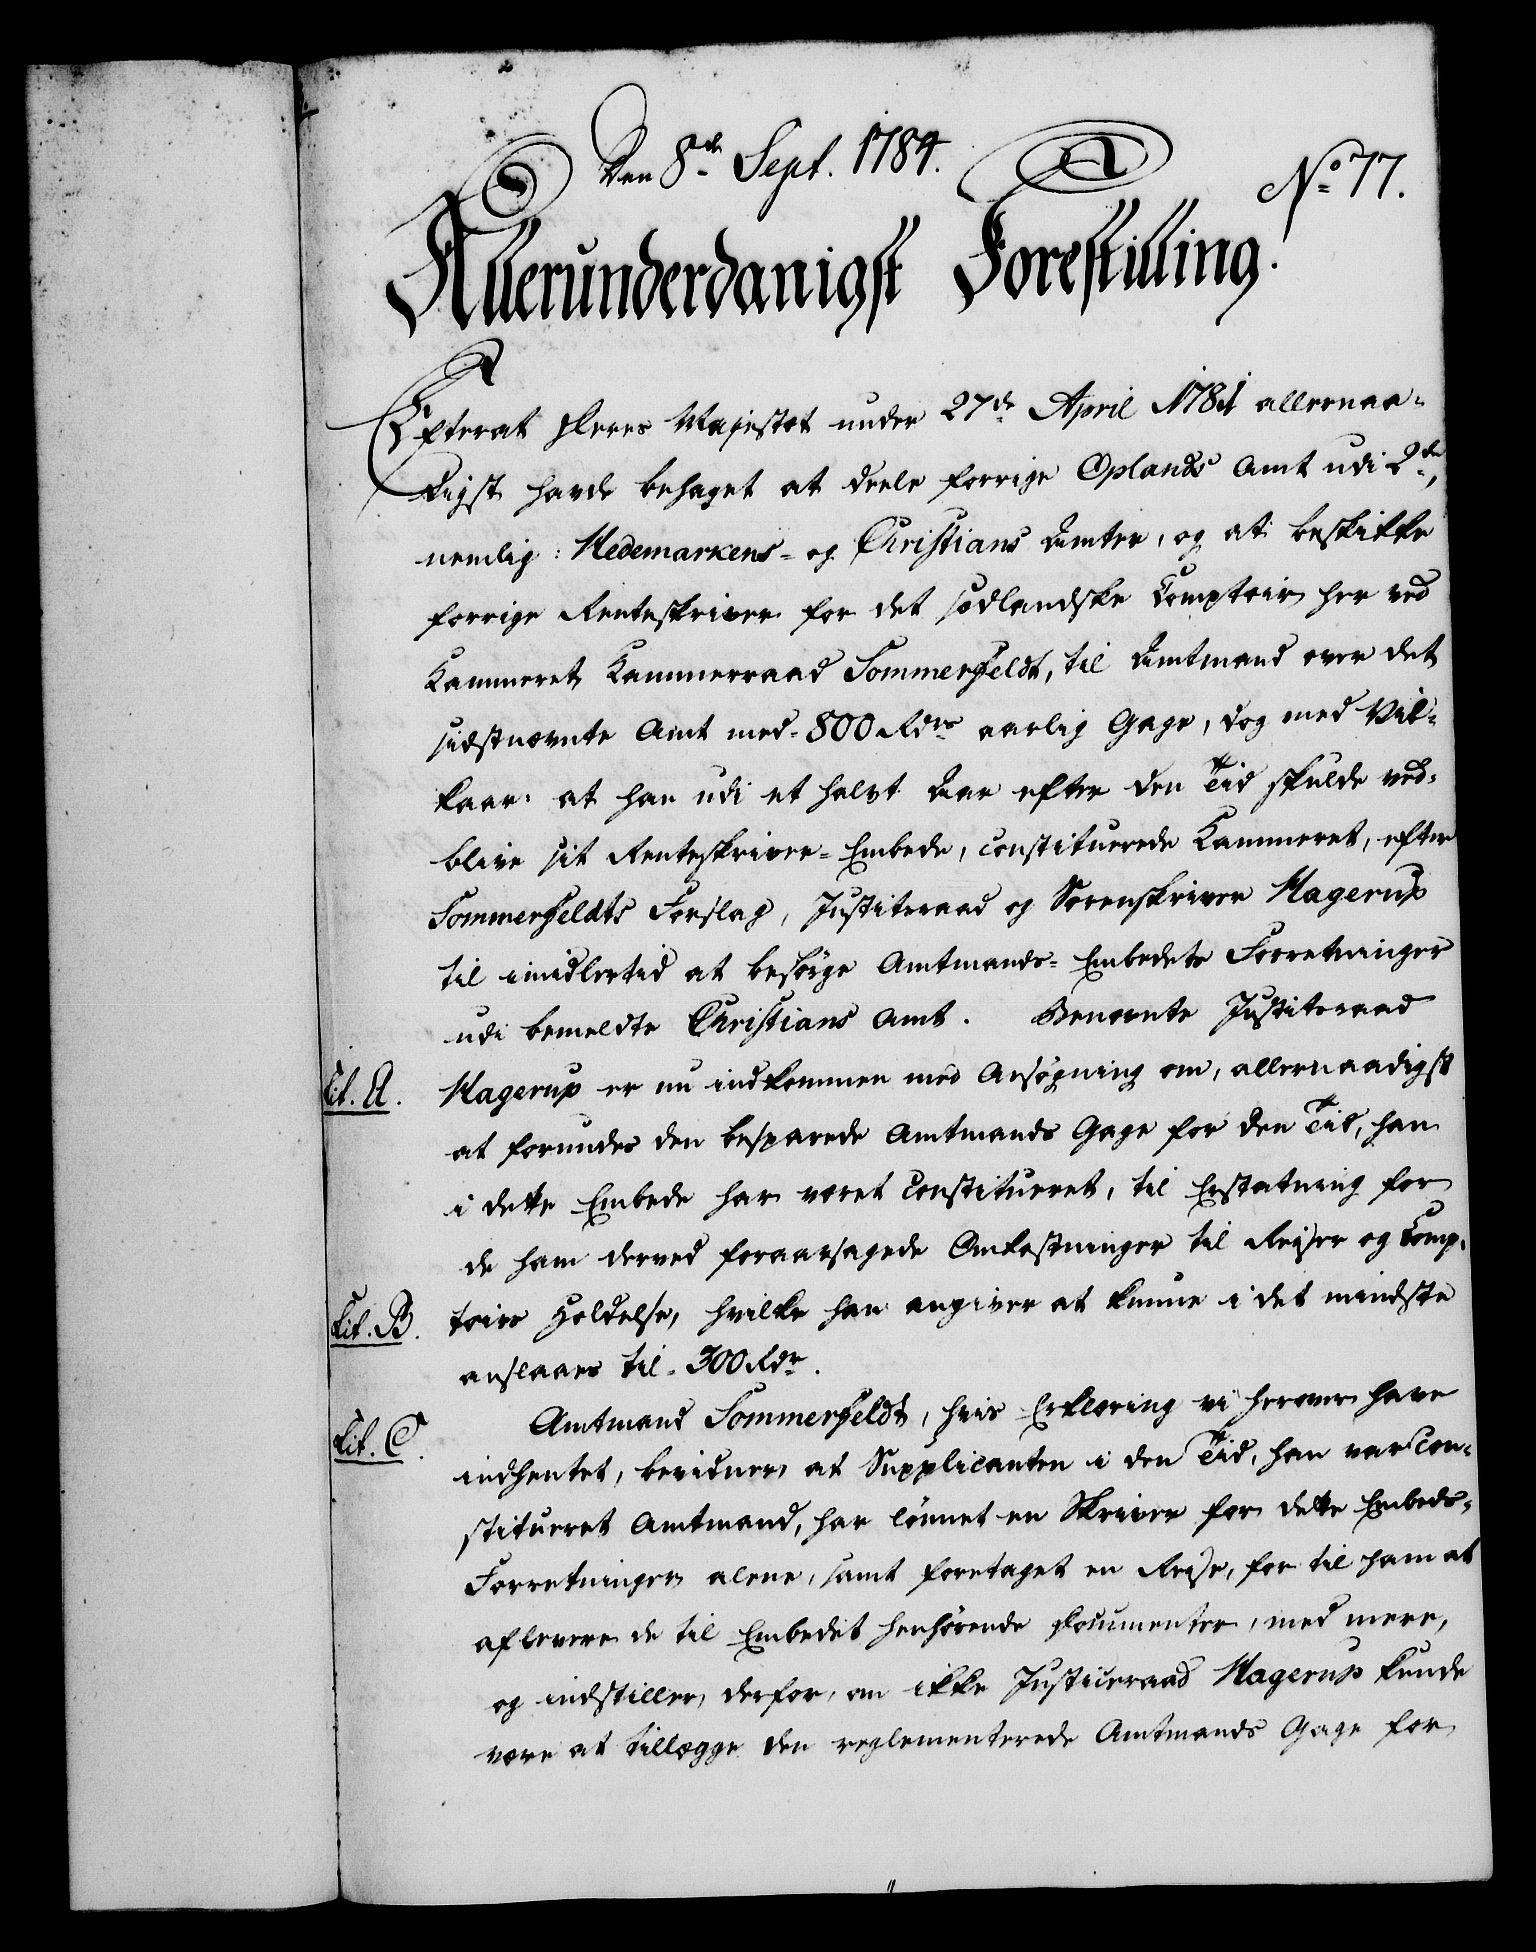 Den 8de Sept. 1784.
No 77.
Allerunderdanigst Forestilling!
Efterat Deres Majestæt under 27de April 1781 allernaa-
digst havde behaget at deele forrige Oplands Amt udi 2de,
nemlig: Hedemarkens- og Christians Amter, og at beskikke
forrige Renteskriver for det sødlandske Comptoir her ved
Kammeret, Kammerraad Sommerfeldt, til Amtmand over det
sidstnævnte Amt med 800 Rdrs aarlig Gage, dog med Vil-
kaar: at han udi et halvt Aar efter den Tid skulde ved-
blive sit Renteskriver-Embede, constituerede Kammeret, efter
Sommerfeldts Forslag, Justitsraad og Sorenskriver Hagerup
til imidlertid at besørge Amtmands-Embedets Forretninger
udi bemeldte Christians Amt. Benævnte Justitsraad
Lit. A. Hagerup er nu indkommen med Ansøgning om, allernaadigst
at forundes den besparede Amtmands Gage for den Tid, han
i dette Embede har været constitueret, til Erstatning for
de ham derved foraarsagede Omkostninger til Reiser og Comp-
Lit. B. toirs Holdelse, hvilke han angiver at kunne i det mindste
anslaaes til 300 Rdr.
Lit. C. Amtmand Sommerfeldt, hvis Erklæring vi herover have
indhentet, bevidner, at Supplicanten i den Tid, han var con-
stitueret Amtmand, har lønnet en Skriver for dette Embeds-
Forretninger alene, samt foretaget en Reise, for til ham at
aflevere de til Embedet henhørende Documenter, med mere,
og indstiller derfor, om ikke Justiceraad Hagerup kunde
være at tillægge den reglementerede Amtmands Gage for